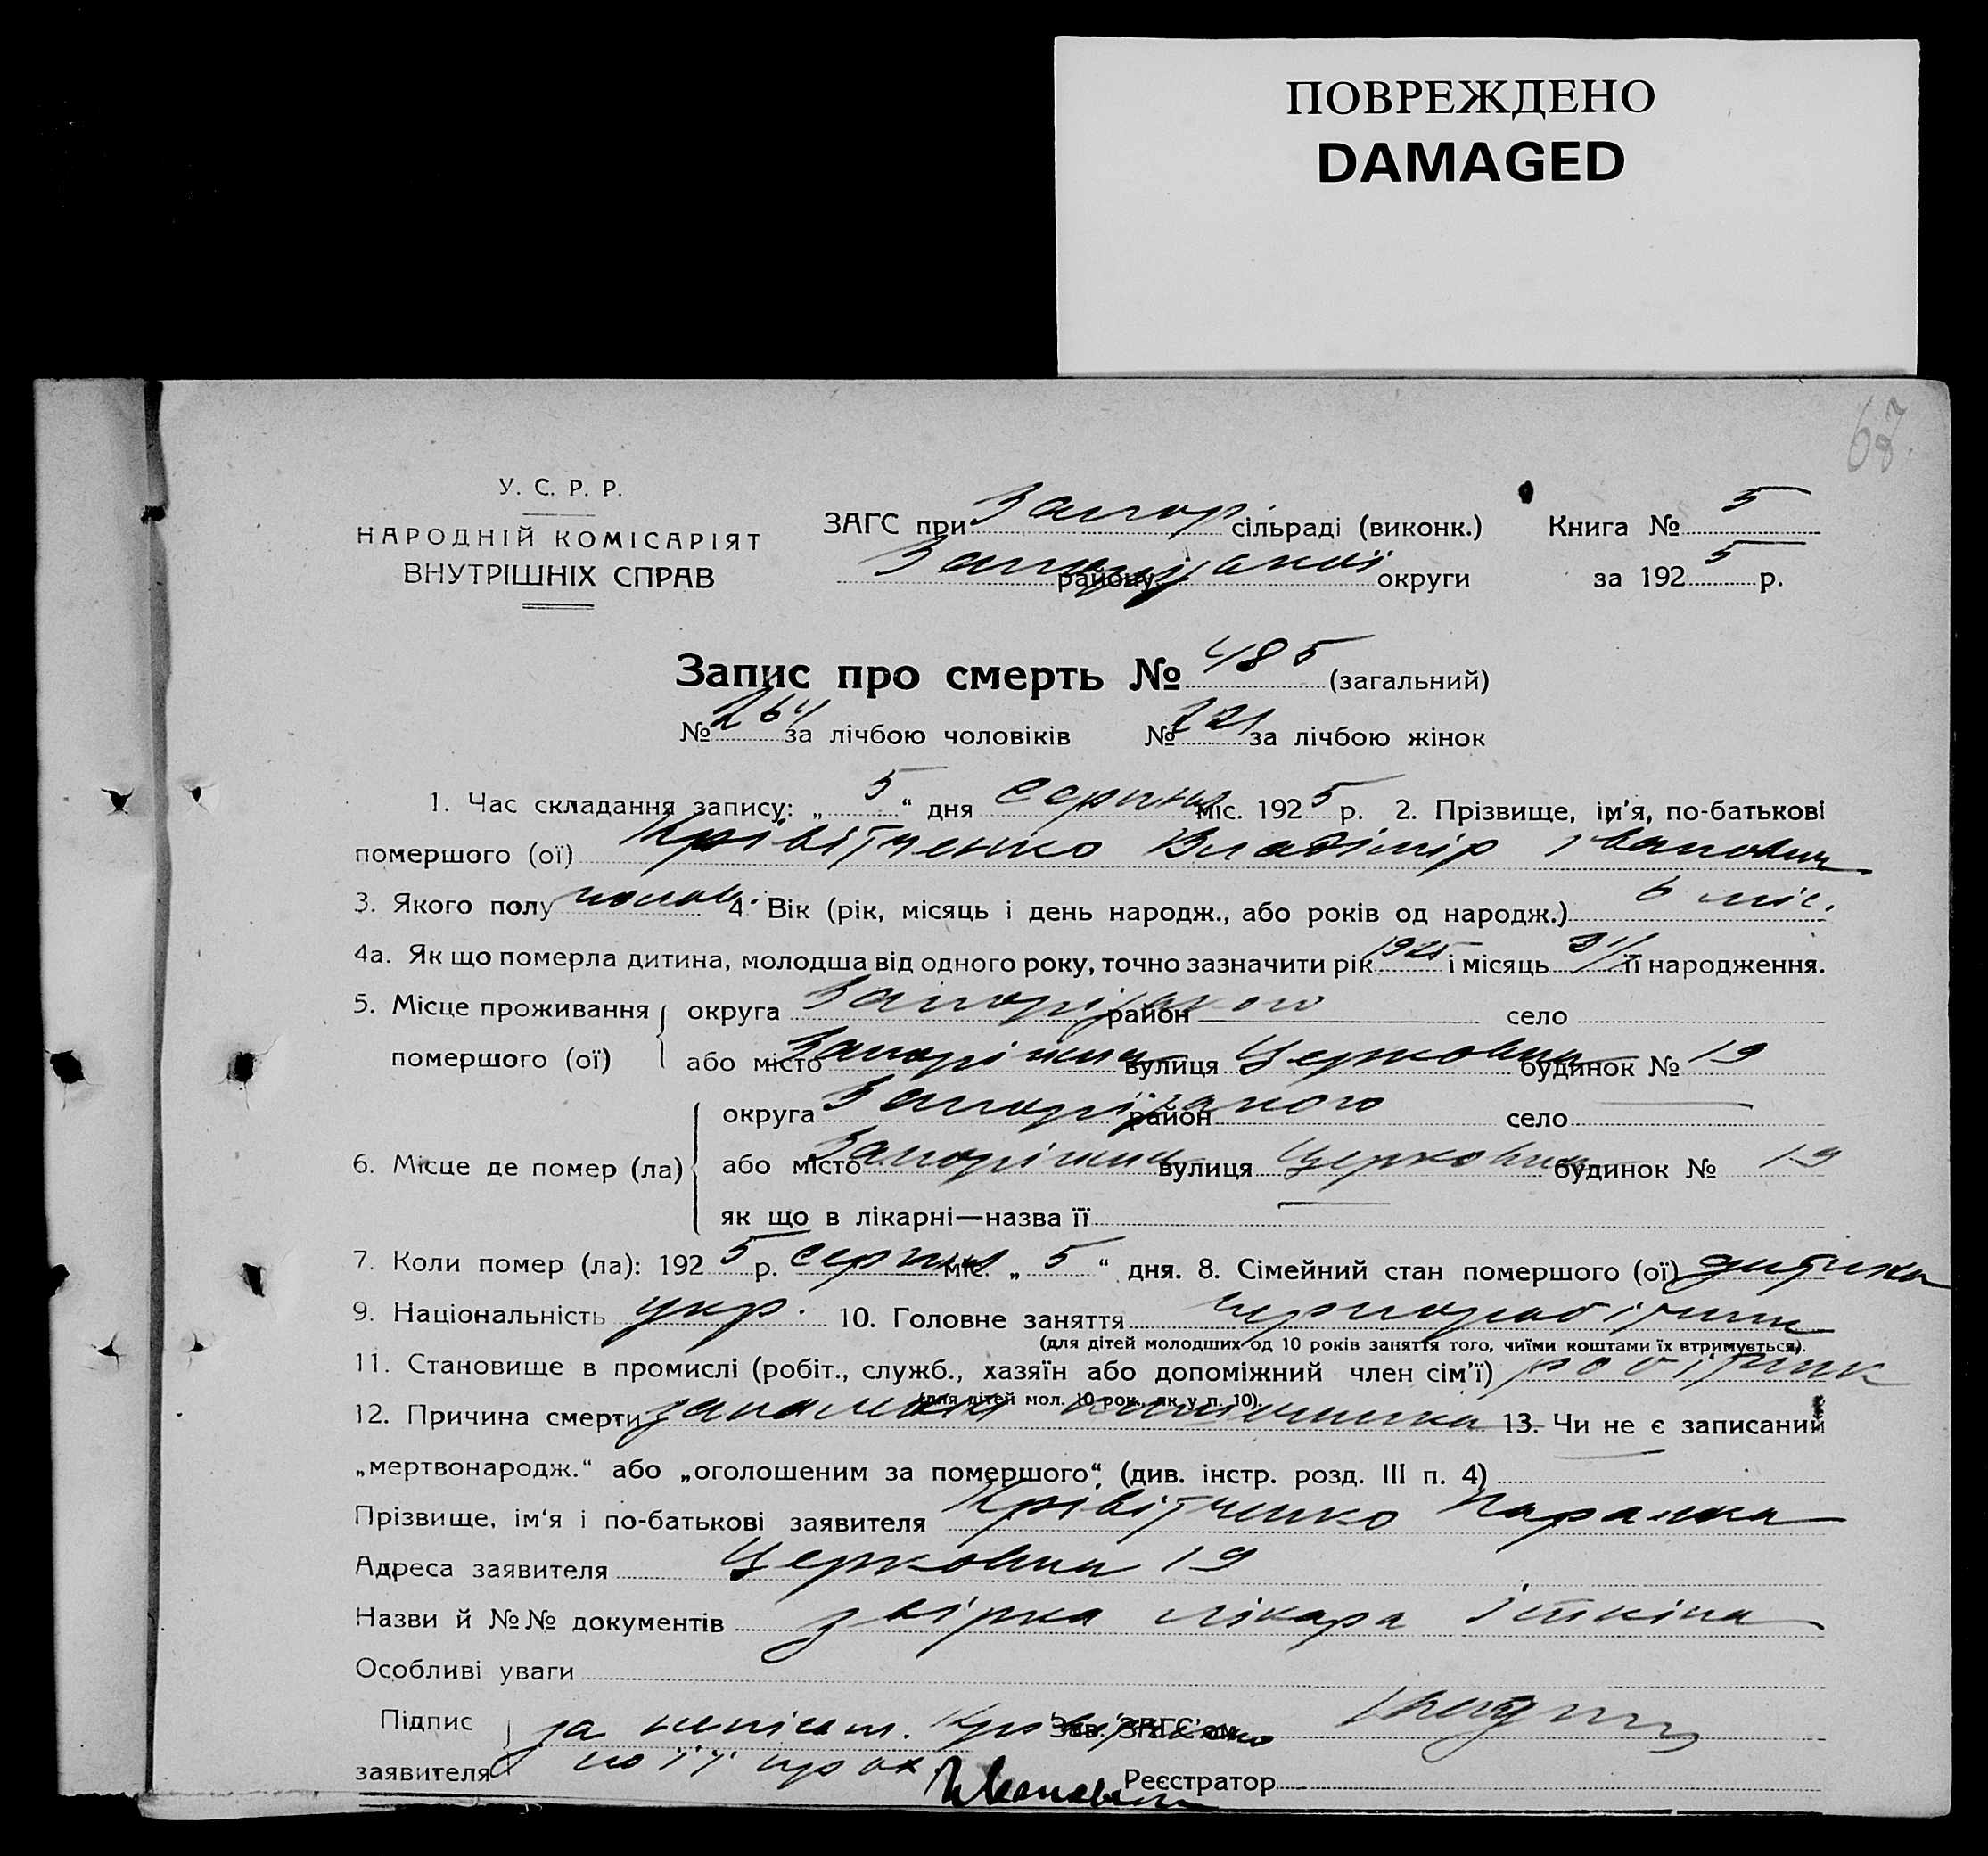 ПОВРЕЖДЕНО
DAMAGED
У. С. Р. Р.
НАРОДНІЙ КОМІСАРІЯТ
ВНУТРІШНІХ СПРАВ
ЗАГС при Запор сільраді (виконк.) Книга № 5
району округи за 1925 р.
Запис про смерть № 485 (загальний)
№ 264 за лічбою чоловіків № 221 за лічбою жінок
1. Час складання запису: „5“ дня серпня міс. 1925 р. 2. Прізвище, ім'я, по-батькові
помершого (ої) Крівітченко Владімір Іванович
3. Якого полу чолов. 4. Вік (рік, місяць і день народж., або років од народж.) 6 міс.
4а. Як що померла дитина, молодша від одного року, точно зазначити рік 1925 і місяць її народження.
5. Місце проживання помершого (ої) округа район село
або місто Запоріжжя вулиця Церковна будинок № 19
6. Місце де помер (ла) округа район село
або місто Запоріжжя вулиця Церковна будинок № 19
як що в лікарні—назва її
7. Коли помер (ла): 1925 р. серпня міс. „5“ дня. 8. Сімейний стан помершого (ої) дитина
9. Національність укр. 10. Головне заняття чорнороботчик
(для дітей молодших од 10 років заняття того, чиїми коштами їх втримується).
11. Становище в промислі (робіт., служб., хазяїн або допоміжний член сім'ї) робітник
(для дітей мол. 10 рок., як у п. 10).
12. Причина смерти запалення кишечника 13. Чи не є записаний
„мертвонародж.“ або „оголошеним за помершого“. (див. інстр. розд. III п. 4)
Прізвище, ім'я і по-батькові заявителя Крівітченко Параска
Адреса заявителя Церковна 19
Назви й №№ документів лікаря Іткіна
Особливі уваги
Підпис заявителя за Зав. ЗАГС'ом
по її прох. Реєстратор